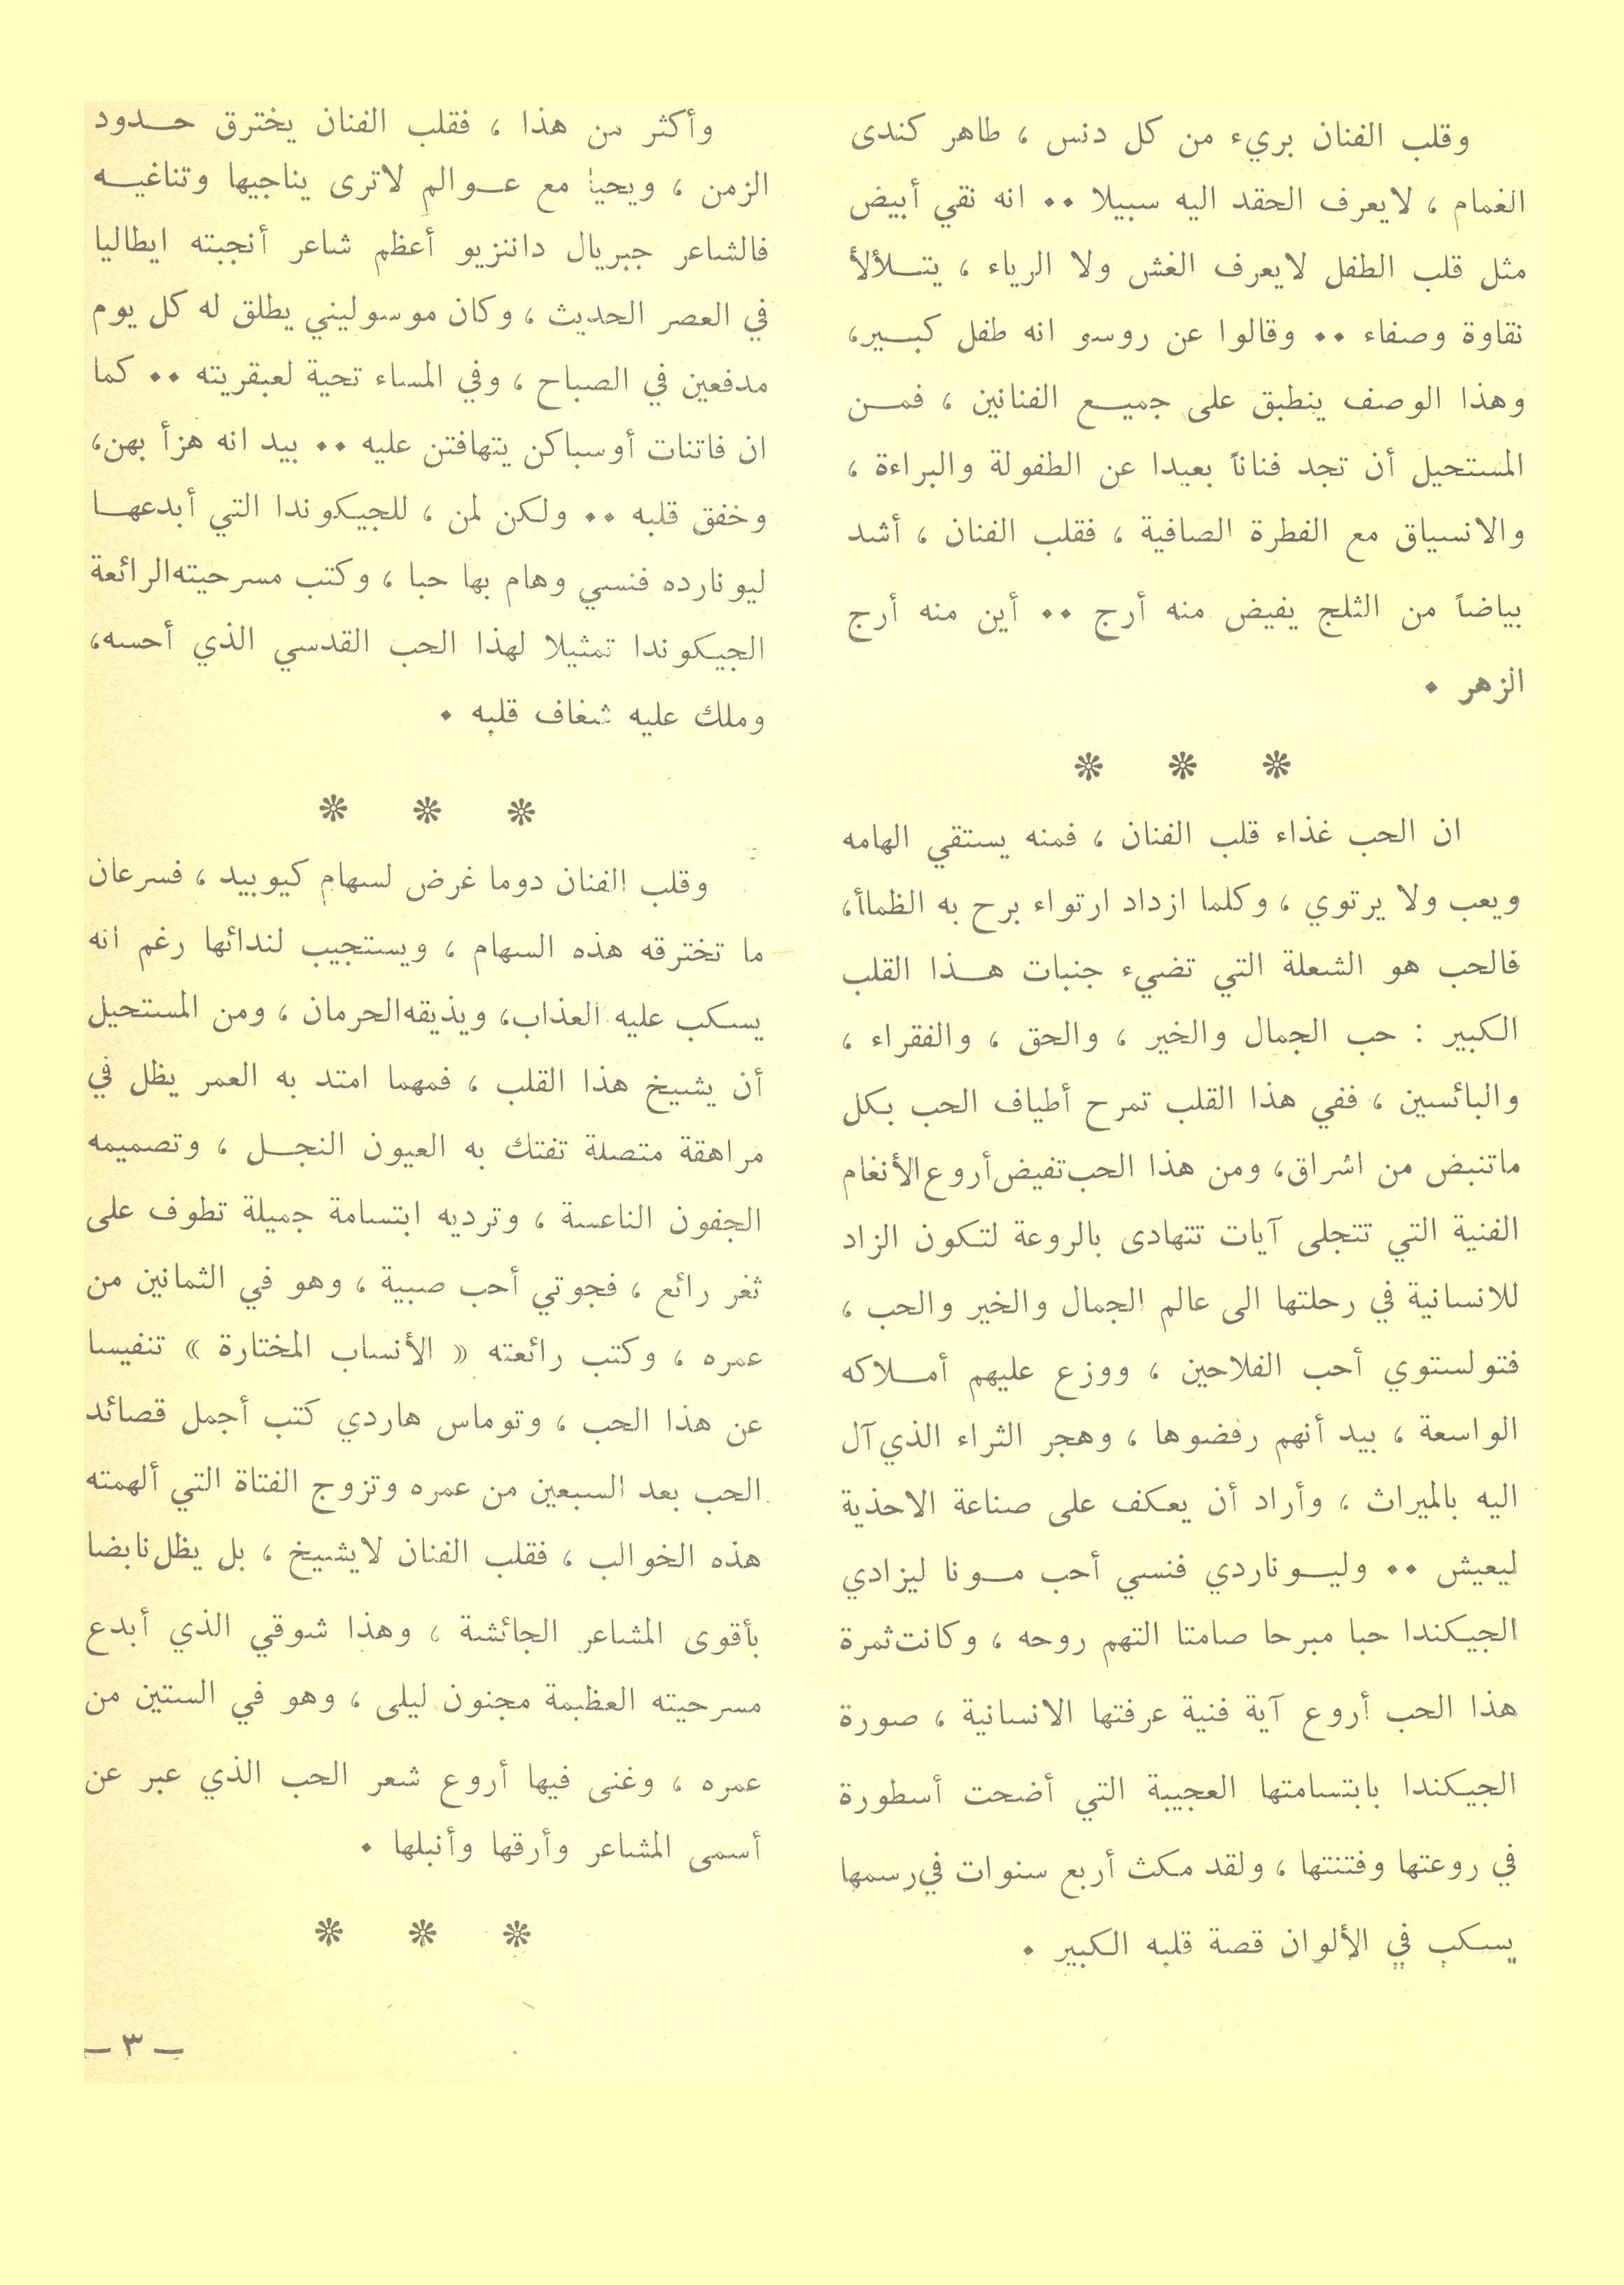 وقلب الفنان بريء من كل دنس ، طاهر كندى
الغمام ، لايعرف الحقد اليه سبيلا ٠٠ انه نقي أبيض
مثل قلب الطفل لايعرف الغش ولا الرياء ، يتــلألأ
نقاوة وصفاء ٠٠ وقالوا عن روسو انه طفل كبــير،
وهذا الوصف ينطبق على جميــع الفنانين ، فمــن
المستحيل أن تجد فناناً بعيدا عن الطفولة والبراءة ،
والانسياق مع الفطرة الصافية ، فقلب الفنان ، أشد
بياضاً من الثلج يفيض منه أرج ٠٠ أين منه أرج
الزهر ٠
❊ ❊ ❊
ان الحب غذاء قلب الفنان ، فمنه يستقي الهامه
ويعب ولا يرتوي ، وكلما ازداد ارتواء برح به الظماأ،
فالحب هو الشعلة التي تضيء جنبات هــذا القلب
الكبير : حب الجمال والخير ، والحق ، والفقراء ،
والبائسين ، ففي هذا القلب تمرح أطياف الحب بكل
ماتنبض من اشراق، ومن هذا الحب تفيض أروع الأنغام
الفنية التي تتجلى آيات تتهادى بالروعة لتكون الزاد
للانسانية في رحلتها الى عالم الجمال والخير والحب ،
فتولستوي أحب الفلاحين ، ووزع عليهم أمــلاكه
الواسعة ، بيد أنهم رفضوها ، وهجر الثراء الذي آل
اليه بالميراث ، وأراد أن يعكف على صناعة الاحذية
ليعيش ٠٠ وليــوناردي فنسي أحب مــونا ليزادي
الجيكندا حبا مبرحا صامتا التهم روحه ، وكانت ثمرة
هذا الحب أروع آية فنية عرفتها الانسانية ، صورة
الجيكندا بابتسامتها العجيبة التي أضحت أسطورة
في روعتها وفتنتها ، ولقد مكث أربع سنوات في رسمها
يسكب في الألوان قصة قلبه الكبير ٠
وأكثر من هذا ، فقلب الفنان يخترق حــدود
الزمن ، ويحيا مع عــوالم لاترى يناجيها وتناغيــه
فالشاعر جبريال داننزيو أعظم شاعر أنجبته ايطاليا
في العصر الحديث ، وكان موسوليني يطلق له كل يوم
مدفعين في الصباح ، وفي المساء تحية لعبقريته ٠٠ كما
ان فاتنات أوسباكن يتهافتن عليه ٠٠ بيد انه هزأ بهن،
وخفق قلبه ٠٠ ولكن لمن ، للجيكوندا التي أبدعهــا
ليونارده فنسي وهام بها حبا ، وكتب مسرحيته الرائعة
الجيكوندا تمثيلا لهذا الحب القدسي الذي أحسه،
وملك عليه شغاف قلبه ٠
❊ ❊ ❊
وقلب الفنان دوما غرض لسهام كيوبيد ، فسرعان
ما تخترقه هذه السهام ، ويستجيب لندائها رغم انه
يسكب عليه العذاب، ويذيقه الحرمان ، ومن المستحيل
أن يشيخ هذا القلب ، فمهما امتد به العمر يظل في
مراهقة متصلة تفتك به العيون النجــل ، وتصميمه
الجفون الناعسة ، وترديه ابتسامة جميلة تطوف على
ثغر رائع ، فجوتي أحب صبية ، وهو في الثمانين من
عمره ، وكتب رائعته « الأنساب المختارة » تنفيسا
عن هذا الحب ، وتوماس هاردي كتب أجمل قصائد
الحب بعد السبعين من عمره وتزوج الفتاة التي ألهمته
هذه الخوالب ، فقلب الفنان لايشيخ ، بل يظل نابضا
بأقوى المشاعر الجائشة ، وهذا شوقي الذي أبدع
مسرحيته العظيمة مجنون ليلى ، وهو في الستين من
عمره ، وغنى فيها أروع شعر الحب الذي عبر عن
أسمى المشاعر وأرقها وأنبلها ٠
❊ ❊ ❊
– ٣ –